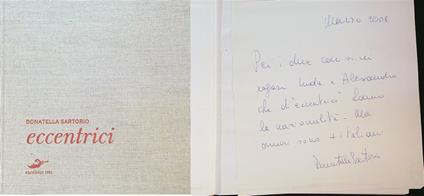 DONATELLA SARTORIO
eccentrici
Marzo 2008
Per i due carissimi
ragazzi Linda e Alessandro
che d'"eccentrici" hanno
la nazionalità. Ma
ormai sono + italiani
Donatella Sartorio